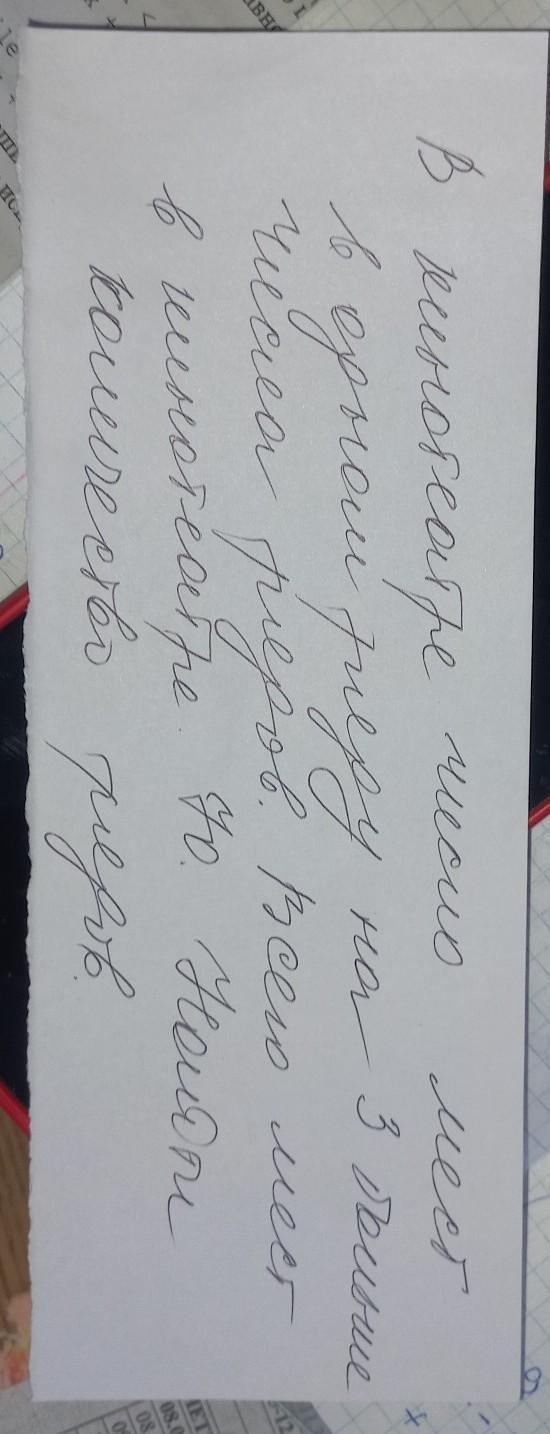 В кинотеатре число мест
в одном ряду на 3 больше
числа рядов. Всего мест
в кинотеатре 40. Найти
количество рядов.